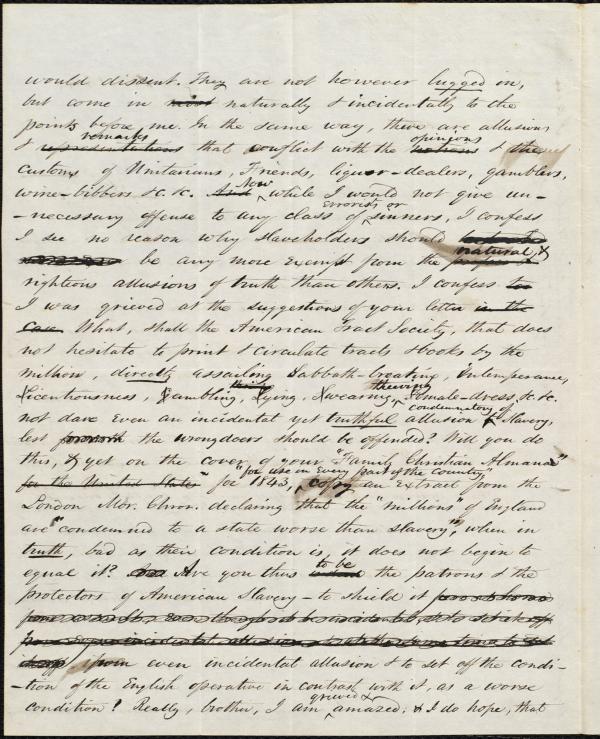 would dissent. They are not however lugged in,
but come in naturally & incidentally to the
points before me. In the same way, there are allusions
& representations remarks that conflict with the notions opinions & the
customs of Unitarians, Friends, liquor-dealers, gamblers,
wine-bibbers &c. &c. And Now while I would not give un-
-necessary offense to any class of errorists or sinners, I confess
I see no reason why slaveholders should
natural, &
be any more exempt from the
righteous allusions of truth than others. I confess to
I was grieved at the suggestions of your letter in the
case. What, shall the American Tract Society, that does
not hesitate to print & circulate tracts & books by the
million, directly assailing Sabbath-breaking, Intemperance,
Licentiousness, Gambling, Lying, Swearing, thieving Female-dress, &c. &c.
not dare even an incidental yet truthful allusion condemnatory of Slavery,
lest the wrongdoers should be offended? Will you do
this, & yet on the cover of your "Family Christian Almanac"
for the United States for 1843, "for use in every part of the country" copy an extract from the
London Mor. Chron. declaring that the "millions" of England
are "condemned to a state worse than slavery", when in
truth, bad as their condition is, it does not begin to
equal it? Are you thus to be the patrons & the
protectors of American Slavery – to shield it
from even incidental allusion & to set off the condi-
-tion of the English operative in contrast with it, as a worse
condition! Really, brother, I am grieved & amazed; & I do hope, that